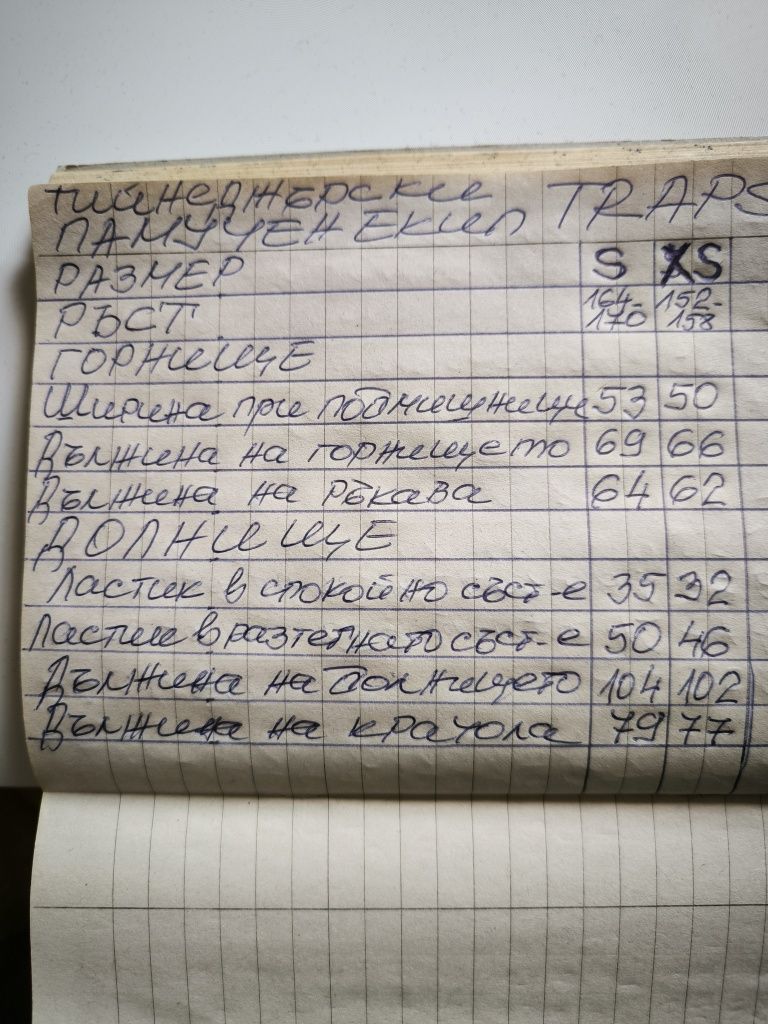 тийнеджърски TRAPS
ПАМУЧЕН ЕКИП
РАЗМЕР S XS
РЪСТ 164-170 152-158
ГОРНИЩЕ
Ширина при подмишнице 53 50
Дължина на горнището 69 66
Дължина на ръкава 64 62
ДОЛНИЩЕ
Ластик в спокойно съст-е 35 32
Ластик в разтегнато съст-е 50 46
Дължина на долнището 104 102
Дължина на крачола 79 77